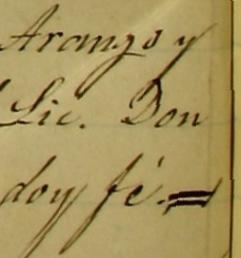 Arango y
Lic. Don
doy fé.=